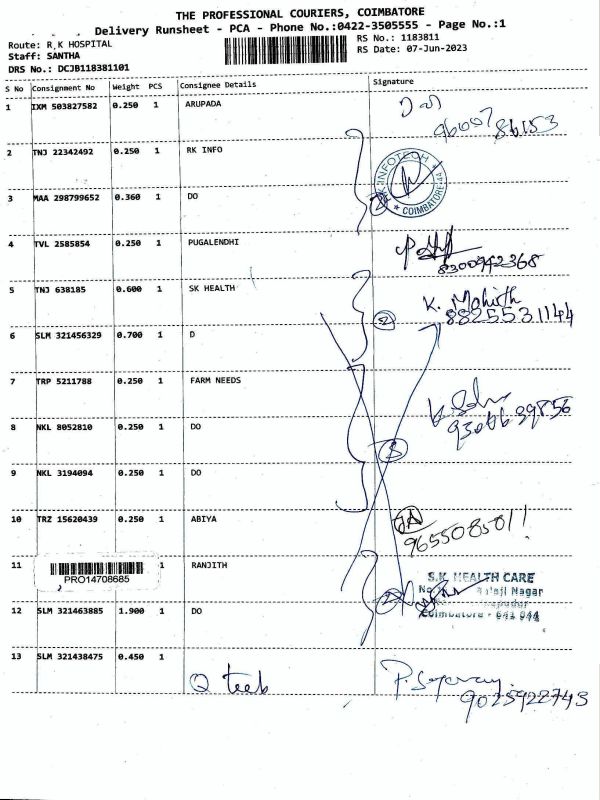 THE PROFESSIONAL COURIERS, COIMBATORE
Delivery Runsheet - PCA - Phone No.:0422-3505555 - Page No.:1
Route: R,K HOSPITAL
RS No.: 1183811
Staff: SANTHA
RS Date: 07-Jun-2023
DRS No.: DCJB118381101
S No Consignment No Weight PCS Consignee Details Signature
1 IXM 503827582 0.250 1 ARUPADA
96007 86153
2 TNJ 22342492 0.250 1 RK INFO
K INFOTECH
COIMBATORE-44
3 MAA 298799652 0.360 1 DO
4 TVL 2585854 0.250 1 PUGALENDHI
8300942368
5 TNJ 638185 0.600 1 SK HEALTH
K. Mohith
8825531144
6 SLM 321456329 0.700 1 D
7 TRP 5211788 0.250 1 FARM NEEDS
8 NKL 8052810 0.250 1 DO
9 NKL 3194094 0.250 1 DO
10 TRZ 15620439 0.250 1 ABIYA
9655085011
11 1 RANJITH
PRO14708685
S.K. HEALTH CARE
Nagar
Coimbatore - 641 044
12 SLM 321463885 1.900 1 DO
13 SLM 321438475 0.450 1
Q teeb
9025922743